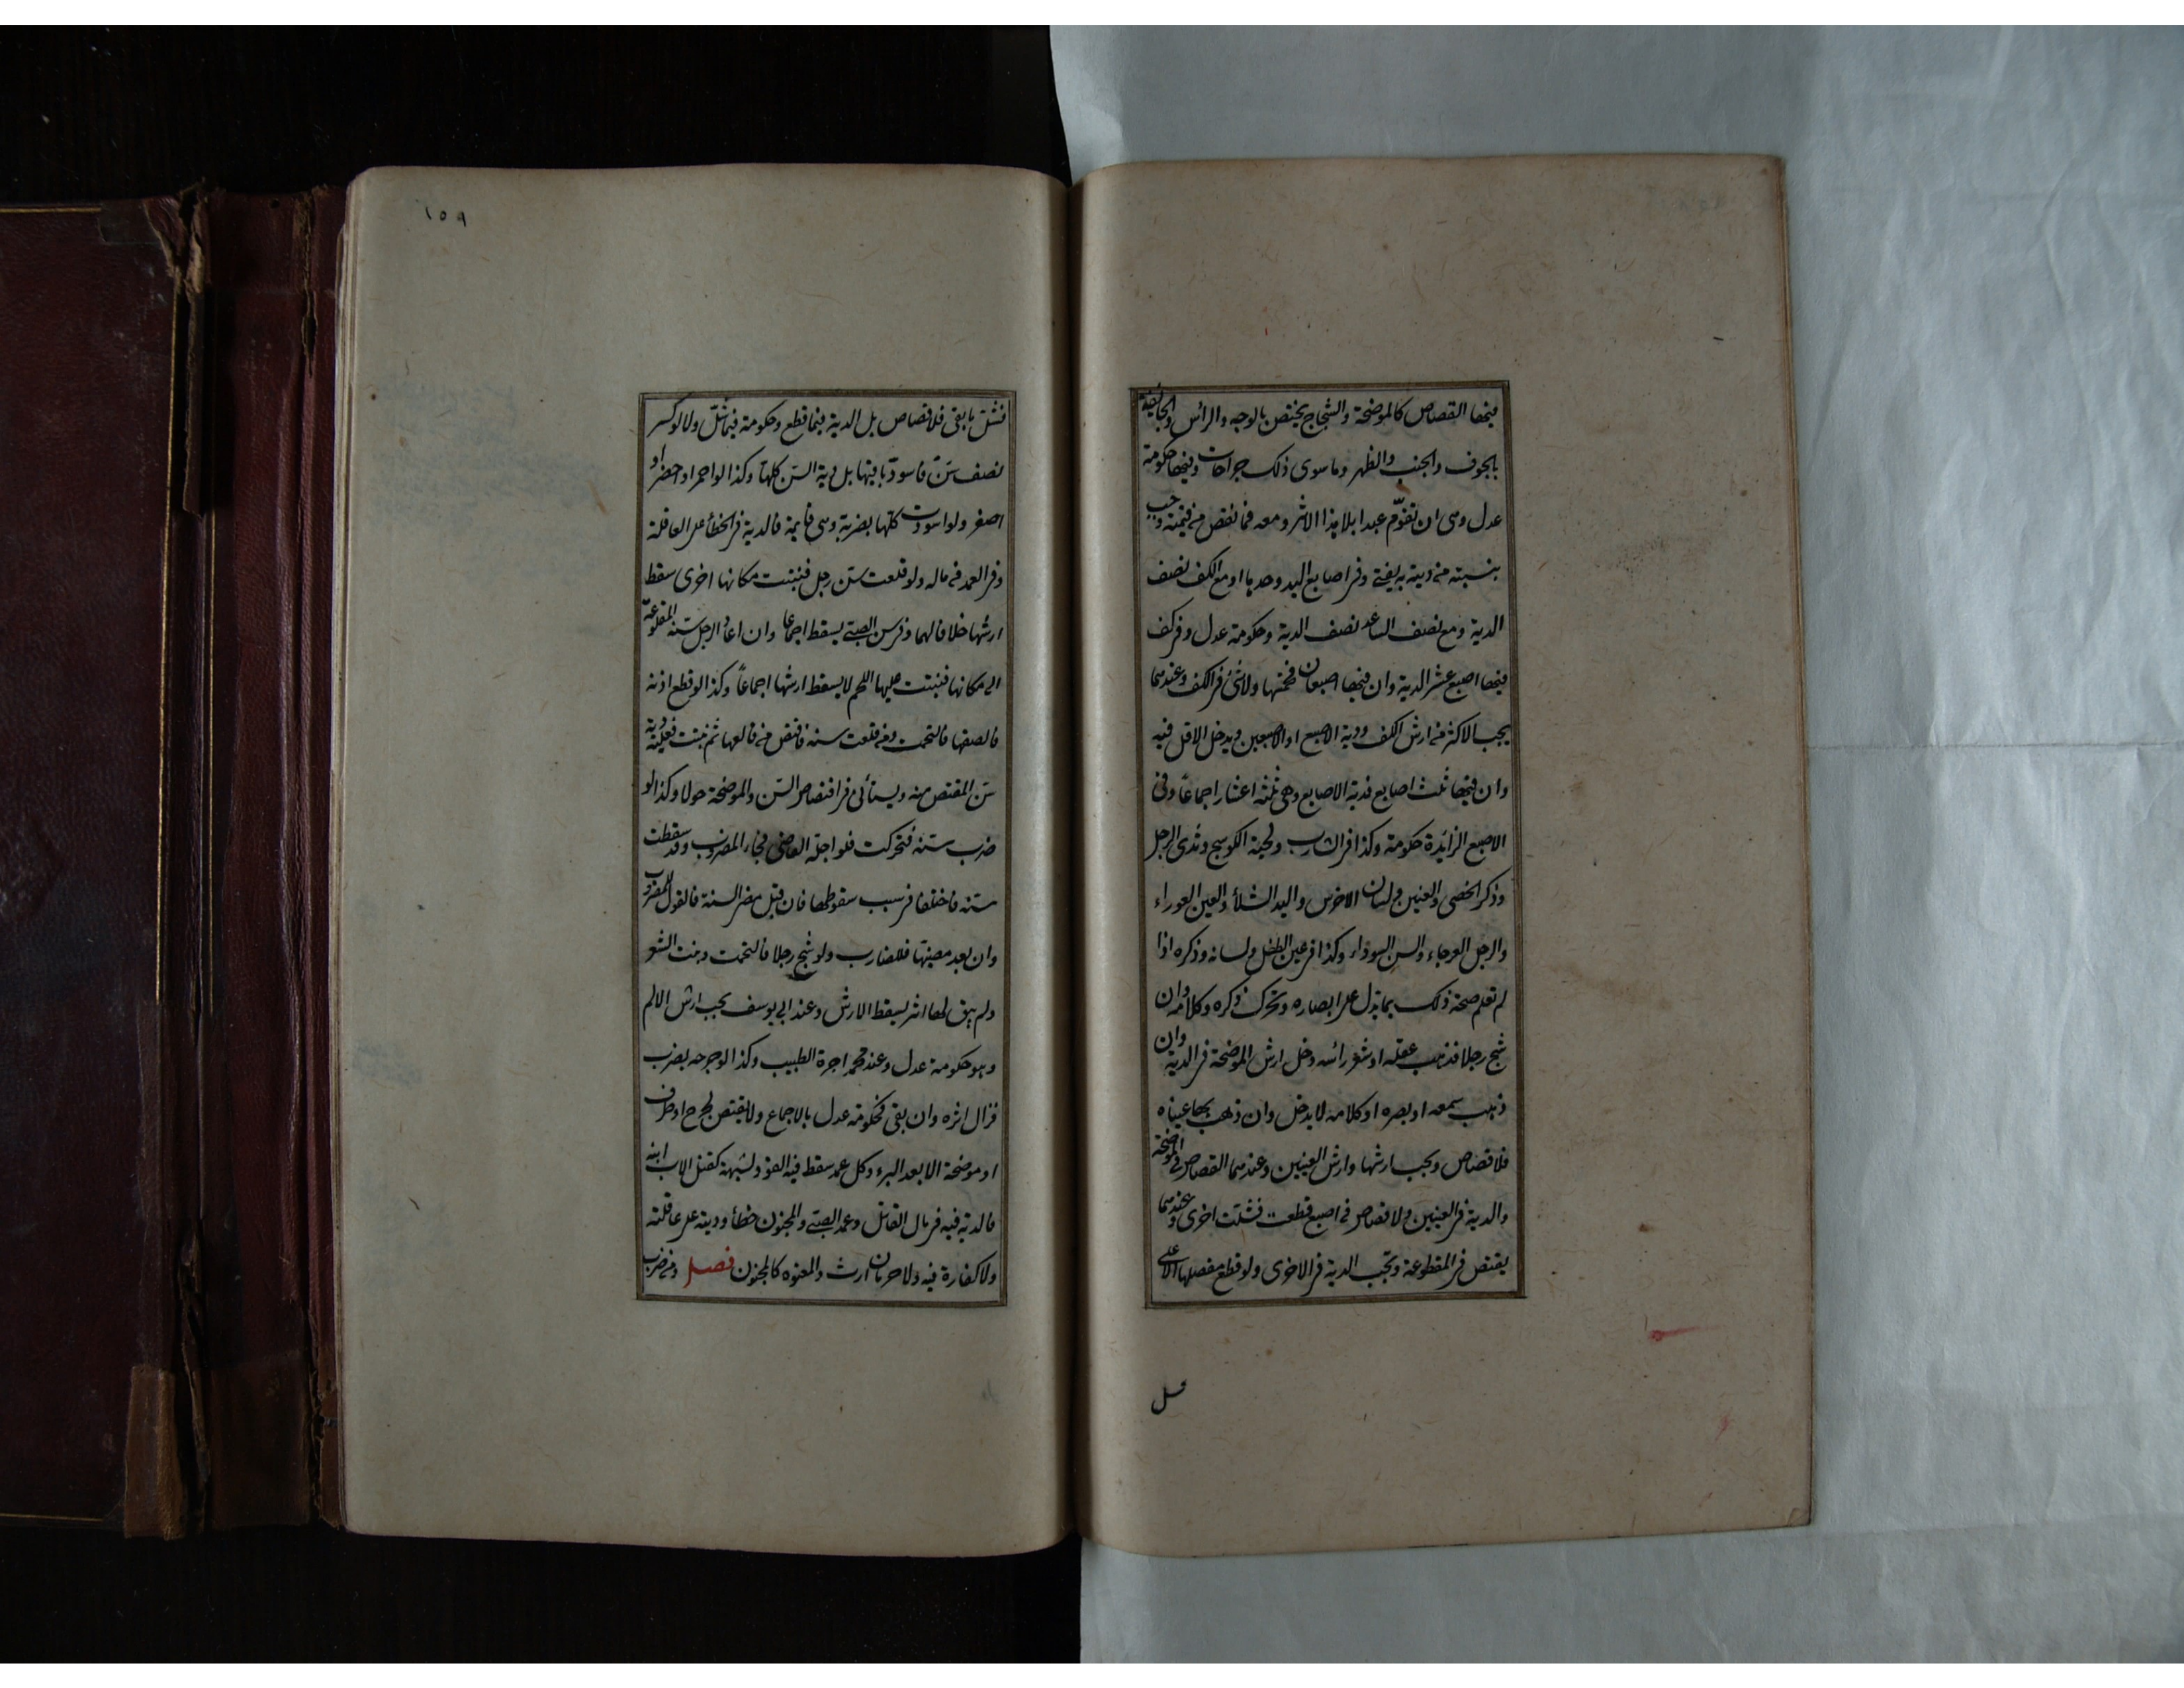 فيها القصاص كالموضحة والشجاج يختص بالوجه والرأس والجائفة
بالجوف والجنب والظهر وما سوى ذلك جراحات وفيها حكومة
عدل وهي ان تقوّم عبدا بلا هذا الاثر ومعه فما نقص من قيمته وجب
بنسبته من ديته به يفتى وفي اصابع اليد وحدها او مع الكف نصف
الدية ومع نصف الساعد نصف الدية وحكومة عدل وفي كف
فيها اصبع عشر الدية وان فيها اصبعان فخمسها ولا شئ في الكف وعندهما
يجب الاكثر من ارش الكف ودية الاصبع او الاصبعين ويدخل الاقل فيه
وان فيها ثلث اصابع فدية الاصابع وهي ثلثة اعشار اجماعاً وفي
الاصبع الزائدة حكومة وكذا في الشارب ولحية الكوسج وثدى الرجل
وذكر الخصي والعنين ولسان الاخرس واليد الشلاء والعين العوراء
والرجل العرجاء والسن السوداء وكذا في عين الطفل ولسانه وذكره اذا
لم تعلم صحة ذلك بما يدل على ابصاره وتحرك ذكره وكلامه وان
شج رجلا فذهب عقله او شعر رأسه دخل ارش الموضحة في الدية وان
ذهب سمعه او بصره او كلامه لا يدخل وان ذهب بها عيناه
فلا قصاص ويجب ارشها وارش العينين وعندهما القصاص في الموضحة
والدية في العينين ولا قصاص في اصبع قطعت فشلت اخرى وعندهما
يقتص في المقطوعة وتجب الدية في الاخرى ولو قطع مفصلها الاعلى
فشل
١٥٩
فشل ما بقى فلا قصاص بل الدية فيما قطع وحكومة فيما شلّ ولا لو كسر
نصف سنّ فاسودّ باقيها بل دية السن كلها وكذا لو احمر او اخضر او
اصفر ولو اسودت كلها بضربة وهي قائمة فالدية في الخطأ على العاقلة
وفي العمد في ماله ولو قلعت سنّ رجل فنبتت مكانها اخرى سقط
ارشها خلافا لهما وفي سن الصبي يسقط اجماعا وان اعاد الرجل سنه المقلوعة
الى مكانها فنبتت عليها اللحم لا يسقط ارشها اجماعاً وكذا لو قطع اذنه
فالصقها فالتحمت ومن قلعت سنه فاقتص من قالعها ثم نبتت فعليه دية
سن المقتص منه ويستأنى في اقتصاص السن والموضحة حولا وكذا لو
ضرب سنه فتحركت فلو اجله القاضي فجاء المضروب وقد سقطت
سنه فاختلفا في سبب سقوطها فان قبل مضى السنة فالقول للمضروب
وان بعد مضيها فللضارب ولو شج رجلا فالتحمت ونبت الشعر
ولم يبق لها اثر يسقط الارش وعند ابي يوسف يجب ارش الالم
وهو حكومة عدل وعند محمد اجرة الطبيب وكذا لو جرحه بضرب
فزال اثره وان بقي فحكومة عدل بالاجماع ولا يقتص لجرح او طرف
او موضحة الا بعد البرء وكل عمد سقط فيه القود لشبهة كقتل الاب ابنه
فالدية فيه في مال القاتل وعمد الصبي والمجنون خطأ وديته على عاقلته
ولا كفارة فيه ولا حرمان ارث والمعتوه كالمجنون فصل ومن ضرب